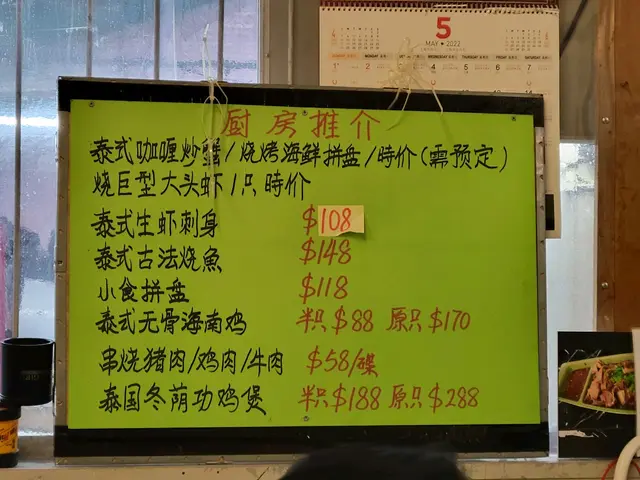 5
MAY • 2022
厨房推介
泰式咖喱炒蟹/烧烤海鲜拼盘/時价(需预定)
烧巨型大头虾/只 時价
泰式生虾刺身 $108
泰式古法烧魚 $148
小食拼盘 $118
泰式无骨海南鸡 半只$88 原只$170
串烧猪肉/鸡肉/牛肉 $58/碟
泰国冬荫功鸡煲 半只$188 原只$288